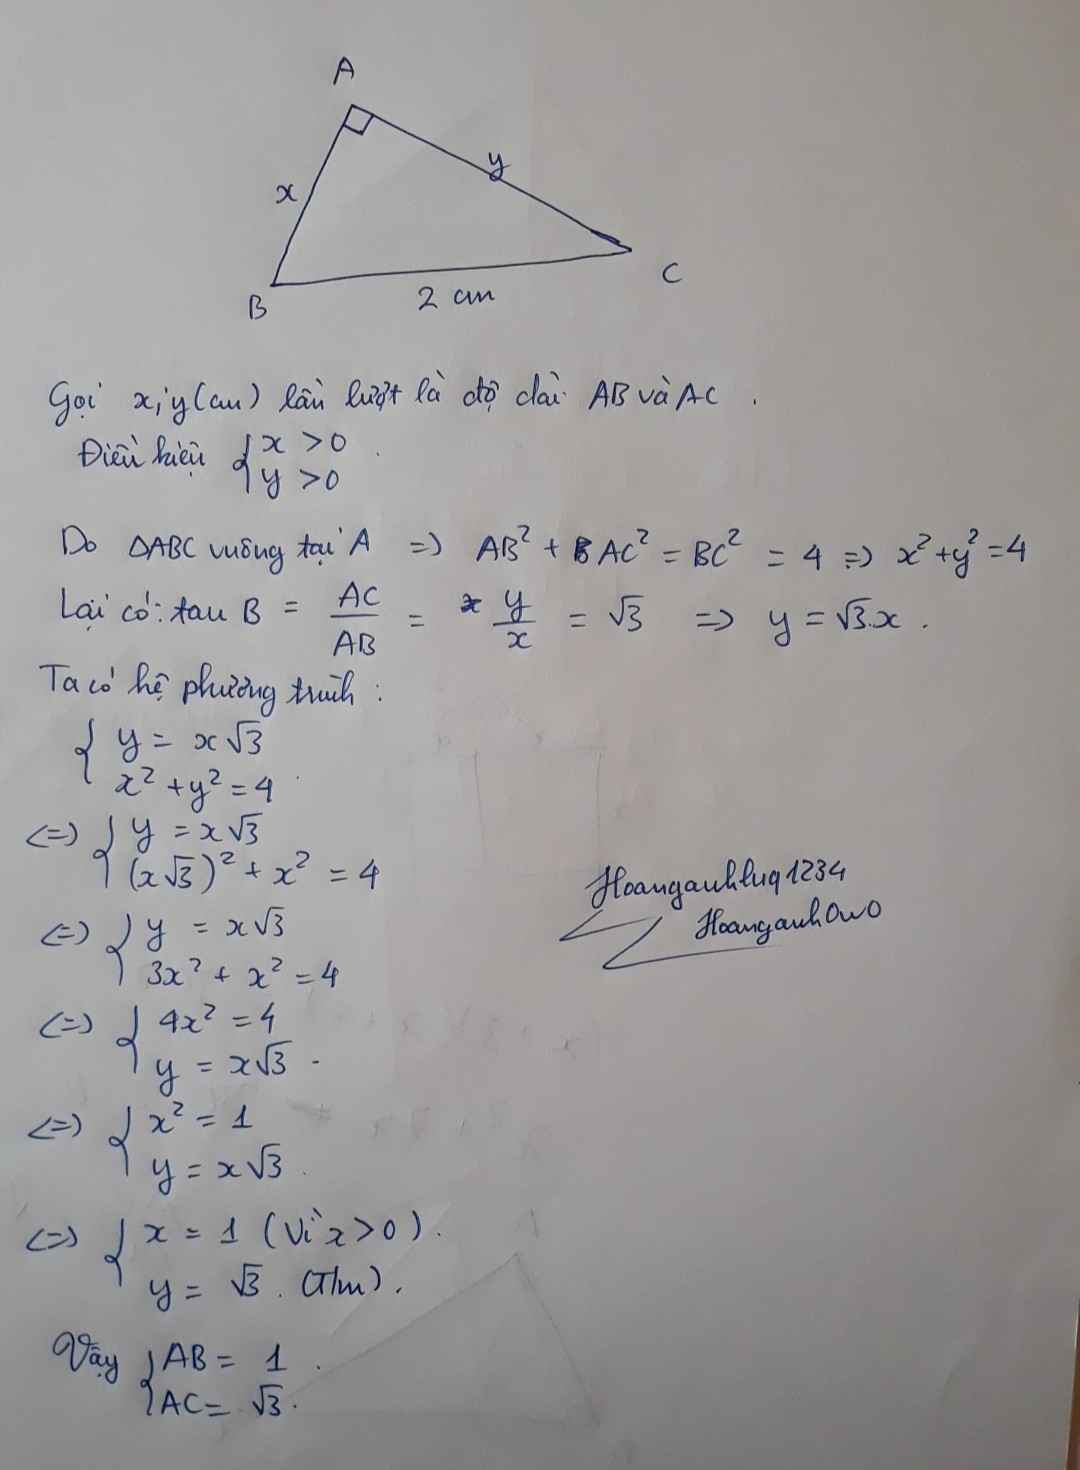 A
x
y
B
2 cm
C
Gọi x;y(cm) lần lượt là độ dài AB và AC.
Điều kiện { x > 0
y > 0
Do ΔABC vuông tại A => AB² + AC² = BC² = 4 => x² + y² = 4
Lại có: tan B = AC/AB = y/x = √3 => y = √3.x.
Ta có hệ phương trình:
{ y = x√3
x² + y² = 4
<=> { y = x√3
(x√3)² + x² = 4
<=> { y = x√3
3x² + x² = 4
<=> { 4x² = 4
y = x√3.
<=> { x² = 1
y = x√3.
<=> { x = 1 (Vì x>0).
y = √3. (T/m).
Vậy { AB = 1.
AC = √3.
Hoanganhluq1234
Hoanganh0w0